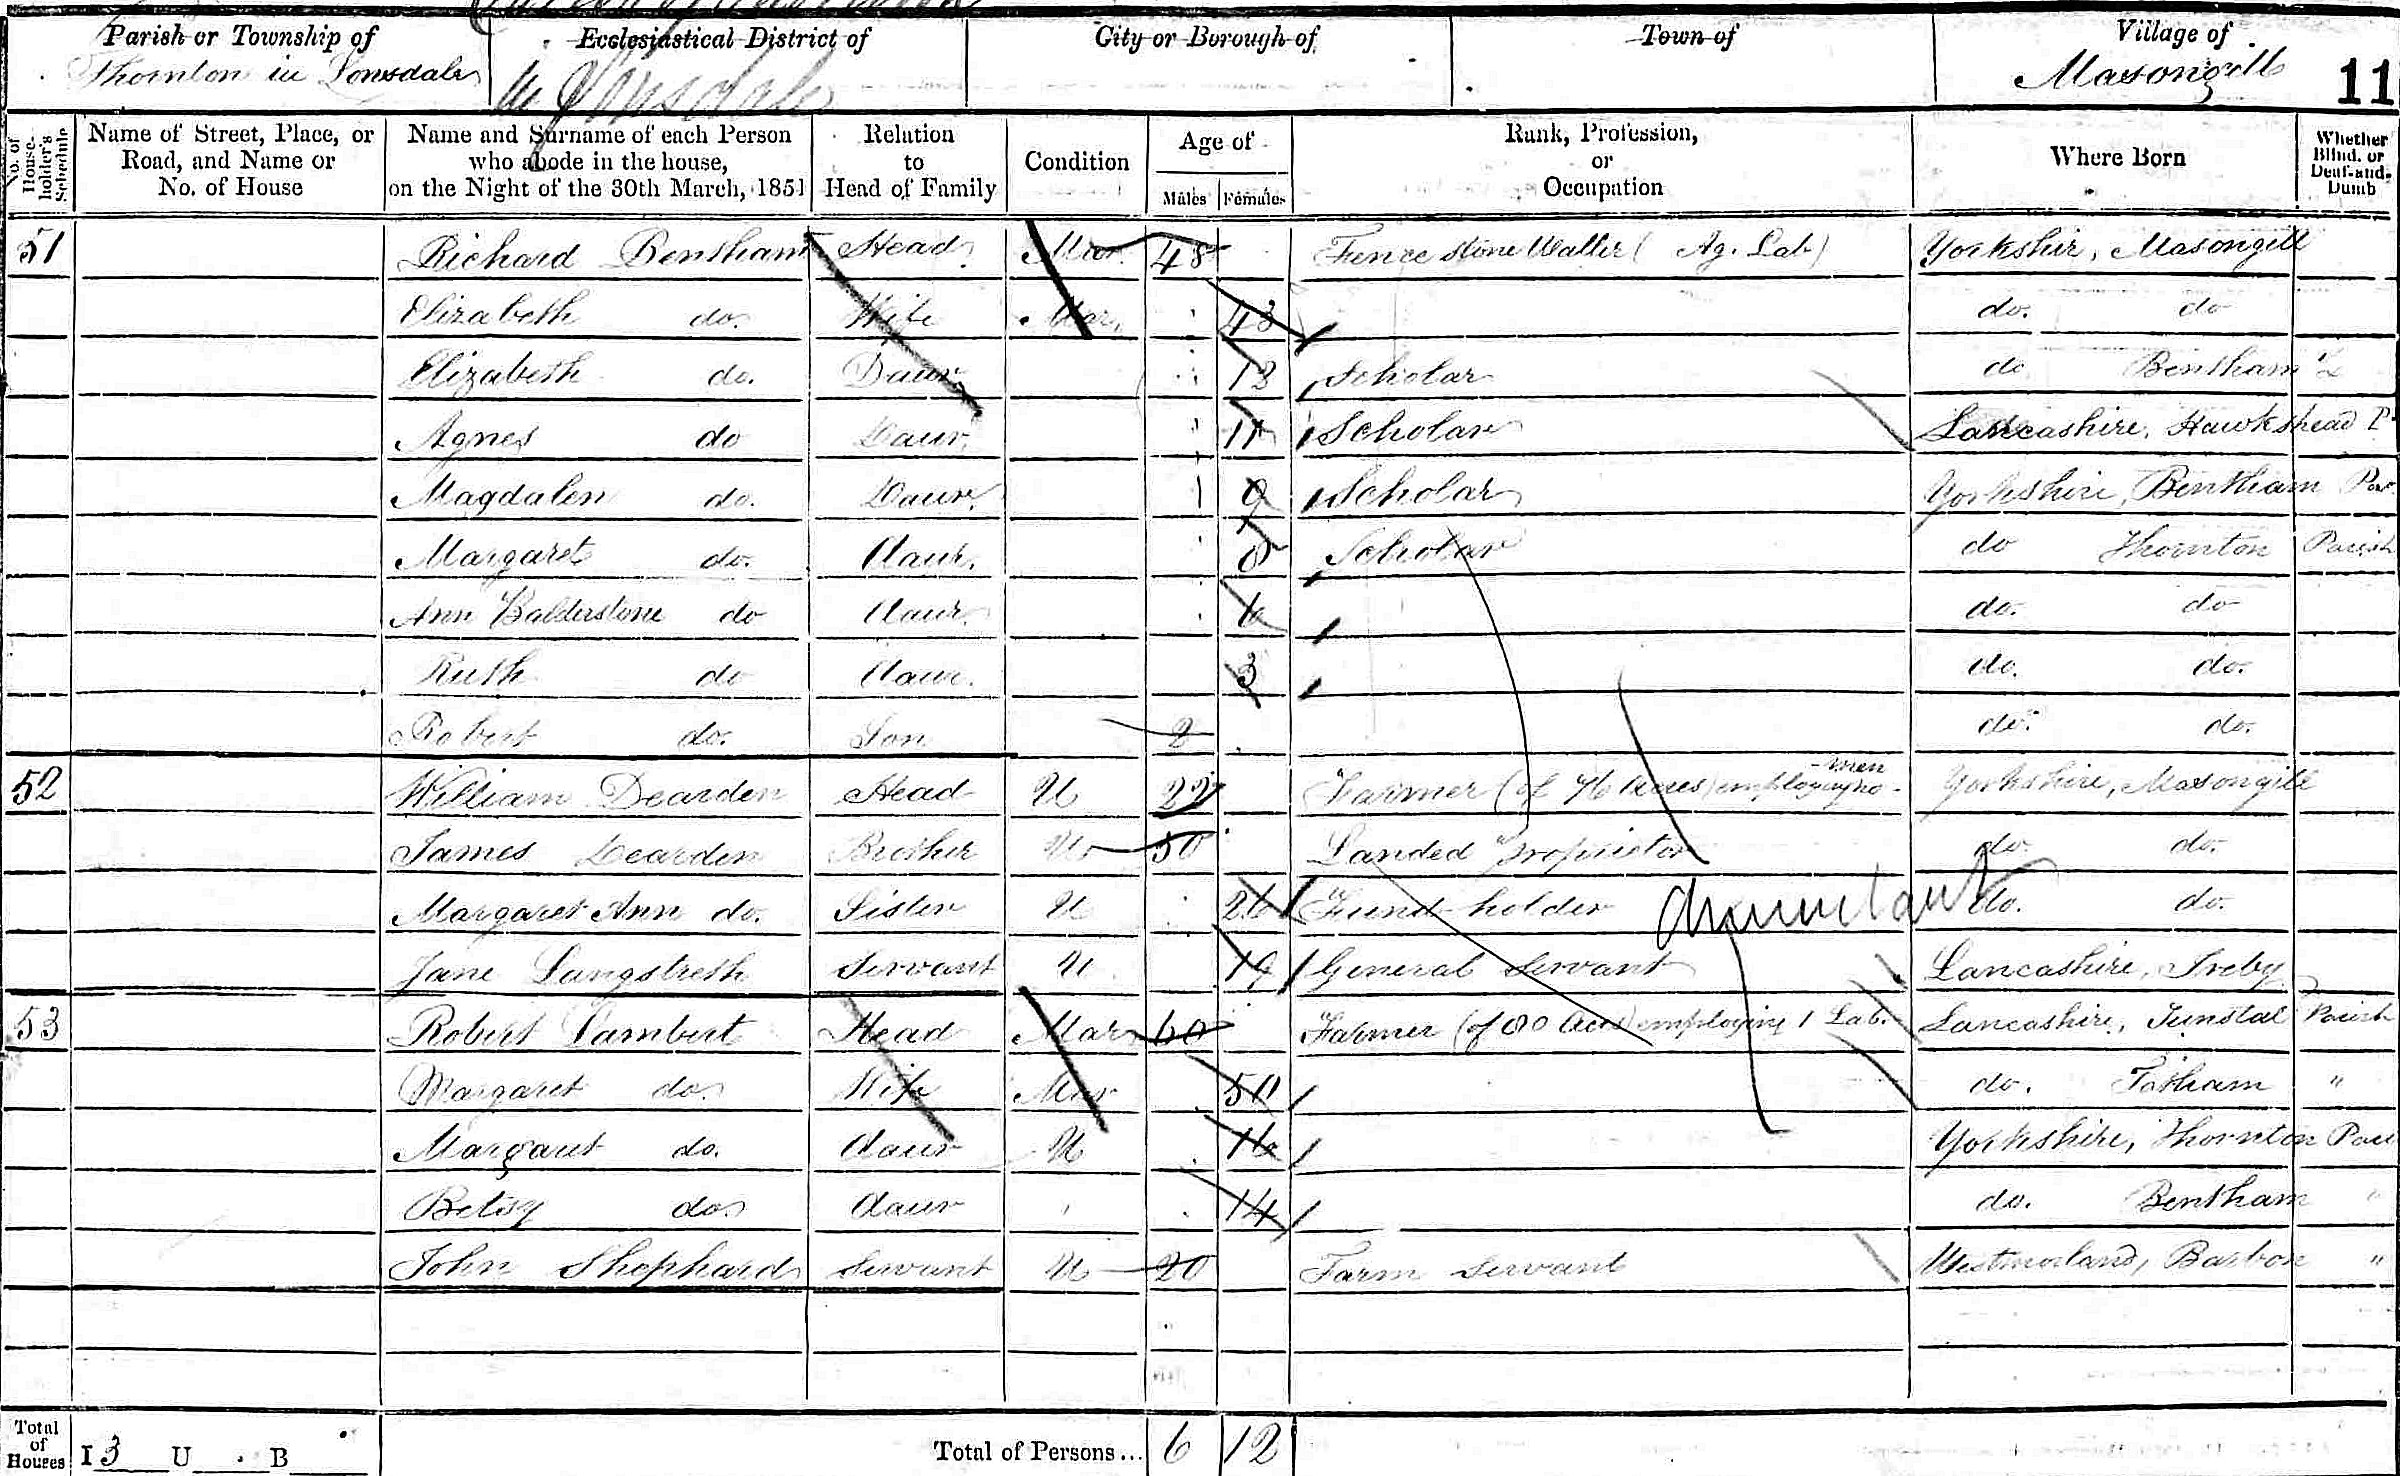 Parish or Township of Ecclesiastical District of City or Borough of Town of Village of
Thornton in Lonsdale Lonsdale Masongill 11
No. of House-holder's Schedule
Name of Street, Place, or Road, and Name or No. of House
Name and Surname of each Person who abode in the house, on the Night of the 30th March, 1851
Relation to Head of Family
Condition
Age of
Males Females
Rank, Profession, or Occupation
Where Born
Whether Blind, or Deaf-and-Dumb
51 Richard Bentham Head Mar. 48 Fence Stone Waller (Ag. Lab) Yorkshir, Masongill
Elizabeth do. Wife Mar. 43 do. do
Elizabeth do. Daur. 13 Scholar do Bentham
Agnes do Daur. 11 Scholar Lancashire, Hawkshead P
Magdalen do. Daur. 9 Scholar Yorkshire, Bentham Par
Margaret do. daur. 8 Scholar do Thornton Parish
Ann Balderstone do daur. 6 do. do
Ruth do daur. 3 do. do.
Robert do. Son 2 do. do.
52 William Dearden Head U 22 Farmer (of 76 Acres) employing no men Yorkshire, Masongill
James Dearden Brother U 30 Landed Proprietor do. do.
Margaret Ann do. Sister U 26 Fund-holder Annuitant do. do.
Jane Langstreth Servant U 19 General Servant Lancashire, Ireby
53 Robert Lambert Head Mar 60 Farmer (of 80 Acres) employing 1 Lab. Lancashire, Tunstal Parish
Margaret do. Wife Mar 50 do. Tatham "
Margaret do. daur U 16 Yorkshire, Thornton Par
Betsy do. daur 14 do. Bentham "
John Shephard Servant U 20 Farm Servant Westmorland, Barbon "
Total of Houses I 3 U B Total of Persons... 6 12